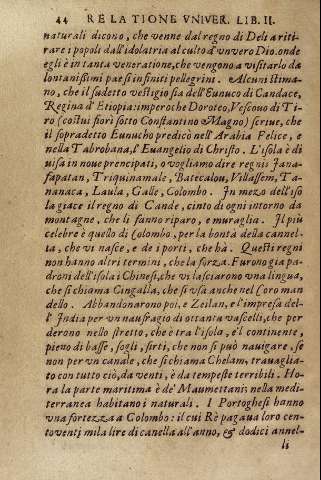 44 RELATIONE VNIVER. LIB. II.
naturali dicono, che venne dal regno di Deli a riti-
rare i popoli dall'idolatria al culto d'vn vero Dio. onde
egli è in tanta veneratione, che vengono a visitarlo da
lontanissimi paesi infiniti pellegrini. Alcuni stima-
no, che il sudetto vestigio sia dell'Eunuco di Candace,
Regina d'Etiopia: imperoche Doroteo, Vescouo di Ti-
ro (costui fiorì sotto Constantino Magno) scriue, che
il sopradetto Eunucho predicò nell'Arabia Felice, e
nella Tabrobana, l'Euangelio di Christo. L'isola è di
uisa in noue prencipati, o vogliamo dire regni: Jana-
sapatan, Triquinamale, Batecalou, Villassem, Ta-
nanaca, Laula, Galle, Colombo. In mezo dell'iso
la giace il regno di Cande, cinto di ogni intorno da
montagne, che li fanno riparo, e muraglia. Il più
celebre è quello di Colombo, per la bontà della cannel-
la, che vi nasce, e de i porti, che hà. Questi regni
non hanno altri termini, che la forza. Furono gia pa-
droni dell'isola i Chinesi, che vi lasciarono vna lingua,
che si chiama Cingalla, che si vsa anche nel Coro man
dello. Abbandonarono poi, e Zeilan, e l'impresa del-
l'India per vn naufragio di ottanta vascelli, che per
derono nello stretto, che è tra l'isola, e'l continente,
pieno di basse, sogli, sirti, che non si può nauigare, se
non per vn canale, che si chiama Chelam, trauaglia-
to con tutto ciò, da venti, è da tempeste terribili. Ho-
ra la parte maritima è de' Maumettani: nella medi-
terranea habitano i naturali. I Portoghesi hanno
vna fortezza a Colombo: il cui Rè pagaua loro cen-
toventi mila lire di canella all'anno, & dodici annel-
li